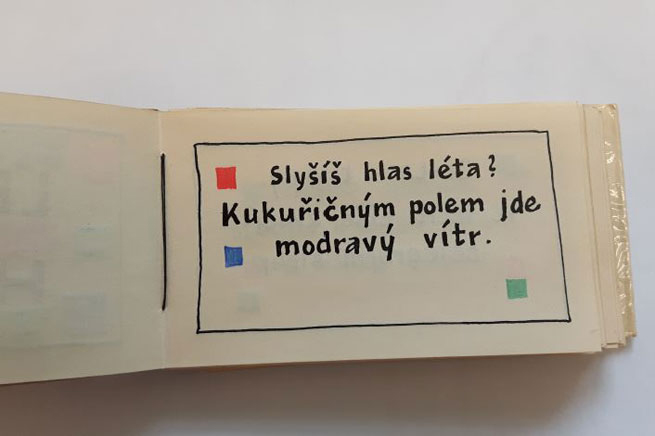 Slyšíš hlas léta?
Kukuřičným polem jde
modravý vítr.